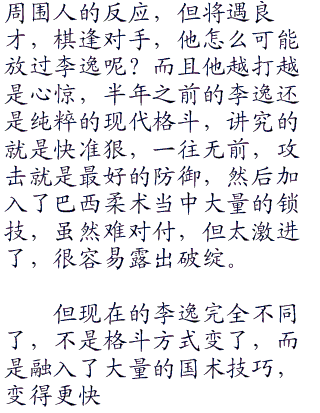 周围人的反应，但将遇良
才，棋逢对手，他怎么可能
放过李逸呢？而且他越打越
是心惊，半年之前的李逸还
是纯粹的现代格斗，讲究的
就是快准狠，一往无前，攻
击就是最好的防御，然后加
入了巴西柔术当中大量的锁
技，虽然难对付，但太激进
了，很容易露出破绽。
但现在的李逸完全不同
了，不是格斗方式变了，而
是融入了大量的国术技巧，
变得更快